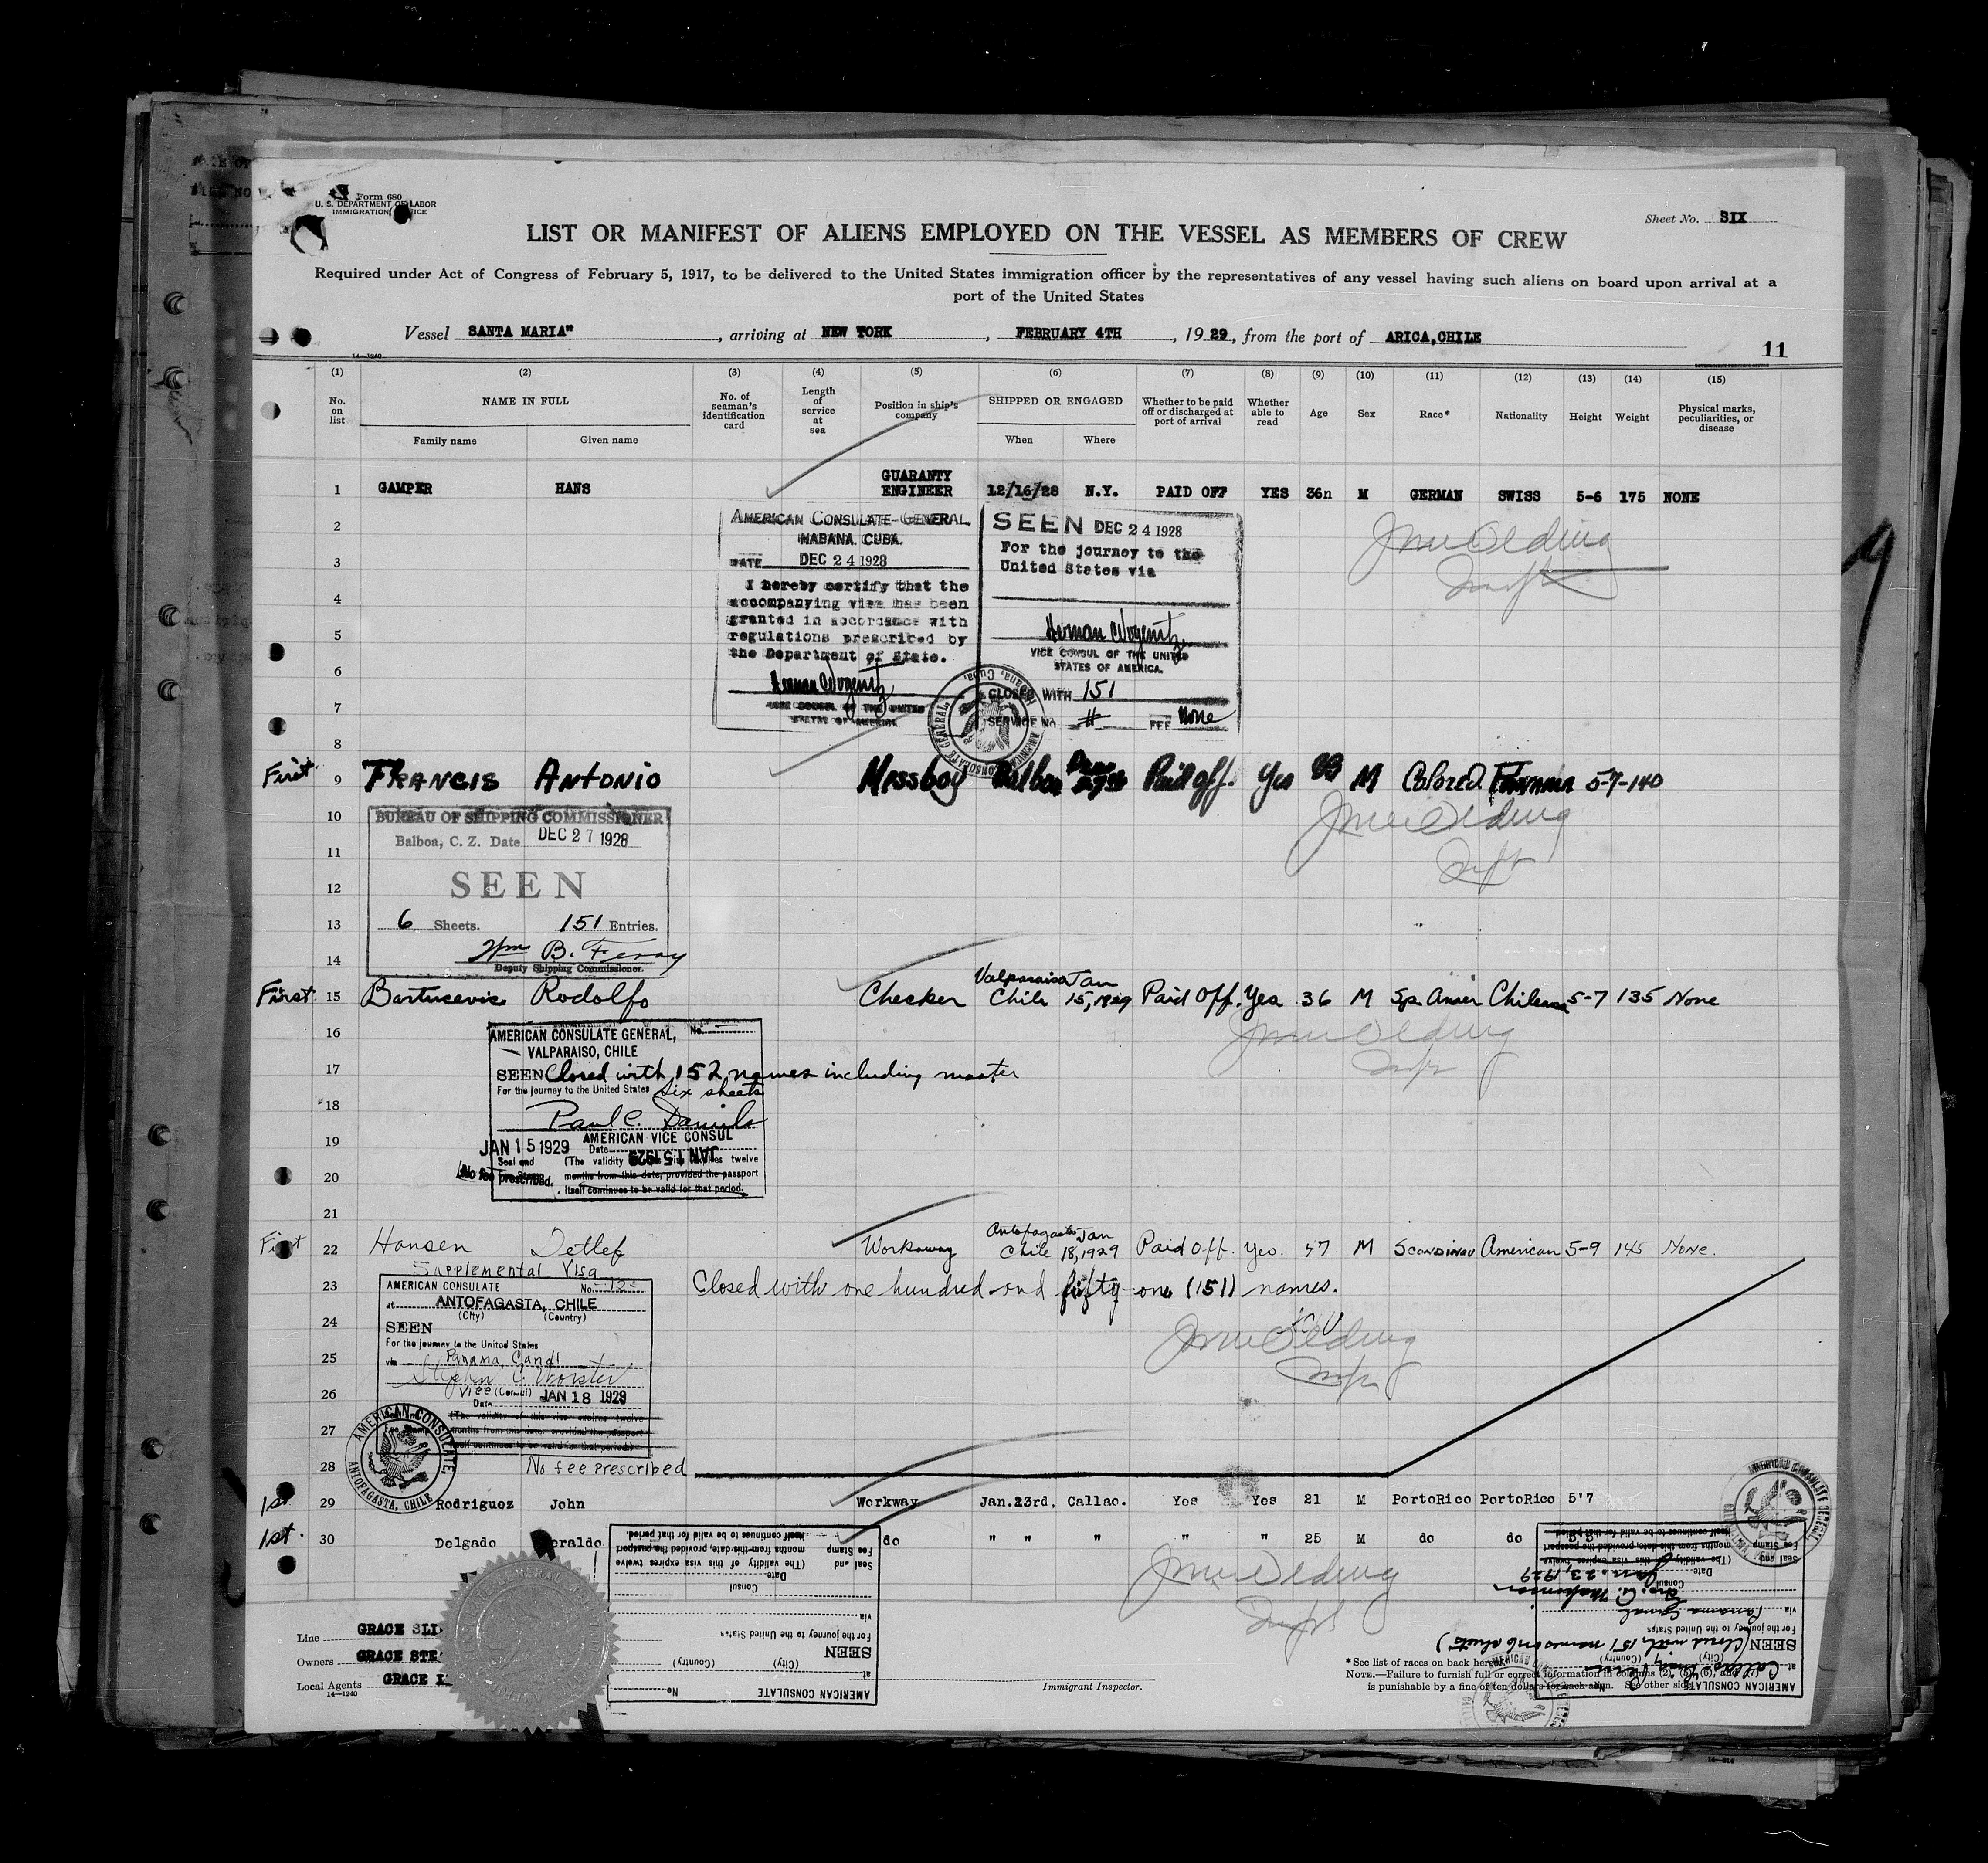 Form 680
U. S. DEPARTMENT OF LABOR
IMMIGRATION SERVICE
Sheet No. SIX
LIST OR MANIFEST OF ALIENS EMPLOYED ON THE VESSEL AS MEMBERS OF CREW
Required under Act of Congress of February 5, 1917, to be delivered to the United States immigration officer by the representatives of any vessel having such aliens on board upon arrival at a
port of the United States
Vessel SANTA MARIA", arriving at NEW YORK, FEBRUARY 4TH, 1929, from the port of ARICA,CHILE
14—1240
11
(1) (2) (3) (4) (5) (6) (7) (8) (9) (10) (11) (12) (13) (14) (15)
No. on list
NAME IN FULL
Family name
Given name
No. of seaman's identification card
Length of service at sea
Position in ship's company
SHIPPED OR ENGAGED
When
Where
Whether to be paid off or discharged at port of arrival
Whether able to read
Age
Sex
Race*
Nationality
Height
Weight
Physical marks, peculiarities, or disease
1 GAMPER HANS GUARANTY ENGINEER 12/16/28 N.Y. PAID OFF YES 36n M GERMAN SWISS 5-6 175 NONE
2
3
4
5
6
7
8
AMERICAN CONSULATE-GENERAL
HABANA. CUBA.
DATE DEC 24 1928
I hereby certify that the
accompanying visa has been
granted in accordance with
regulations prescribed by
the Department of State.
VICE CONSUL OF THE UNITED
STATES OF AMERICA
SEEN DEC 24 1928
For the journey to the
United States via
VICE CONSUL OF THE UNITED
STATES OF AMERICA.
CLOSED WITH 151
SERVICE NO. # FEE None
First 9 FRANCIS ANTONIO Messboy Balboa Paid off. Yes M Colored Panama 5-7-140
10
11
12
13
14
BUREAU OF SHIPPING COMMISSIONER
Balboa, C. Z. Date DEC 27 1928
SEEN
6 Sheets. 151 Entries.
Deputy Shipping Commissioner.
First 15 Bartusevic Rodolfo Checker Valparaiso Chile Jan 15, 1929 Paid Off. Yes 36 M Sp. Amer Chilean 5-7 135 None
16
17
18
19
20
21
AMERICAN CONSULATE GENERAL, No. —
VALPARAISO, CHILE
SEEN Closed with 152 names including master
For the journey to the United States six sheets
Paul C. Daniels
AMERICAN VICE CONSUL
JAN 15 1929 Date JAN 15 1929
Seal and (The validity of this visa expires twelve
No fee prescribed. months from this date, provided the passport
itself continues to be valid for that period.
First 22 Hansen Detlef Workaway Antofagasta Chile Jan 18, 1929 Paid Off. Yes. 47 M Scandinav American 5-9 145 None.
Supplemental Visa
23 Closed with one hundred and fifty-one (151) names.
24
25
26
27
28
AMERICAN CONSULATE
at ANTOFAGASTA, CHILE
(City) (Country)
SEEN
For the journey to the United States
via Panama Canal
Vice (Consul) JAN 18 1929
Date
(The validity of this visa expires twelve
months from this date, provided the passport
itself continues to be valid for that period)
AMERICAN CONSULATE, ANTOFAGASTA, CHILE
No fee prescribed
1st 29 Rodriguez John Workway Jan.23rd, Callao. Yes Yes 21 M PortoRico PortoRico 5'7
1st. 30 Delgado do " " " " " 25 M do do
AMERICAN CONSULATE No.
at
(City) (Country)
SEEN
For the journey to the United States
via
Consul
Date
Seal and Fee Stamp
(The validity of this visa expires twelve
months from this date, provided the passport
itself continues to be valid for that period.
AMERICAN CONSULATE No.
at Callao
(City) (Country)
SEEN Closed with 151 names on 6 sheets)
For the journey to the United States
via Panama Canal
Consul
Date Jan. 23, 1929
Seal and Fee Stamp
(The validity of this visa expires twelve
months from this date, provided the passport
itself continues to be valid for that period.
Line GRACE
Owners GRACE
Local Agents GRACE
14—1240
Immigrant Inspector.
*See list of races on back hereof.
NOTE.—Failure to furnish full or correct information in columns (2), (5), (9), and
is punishable by a fine of ten dollars for each alien. See other side.